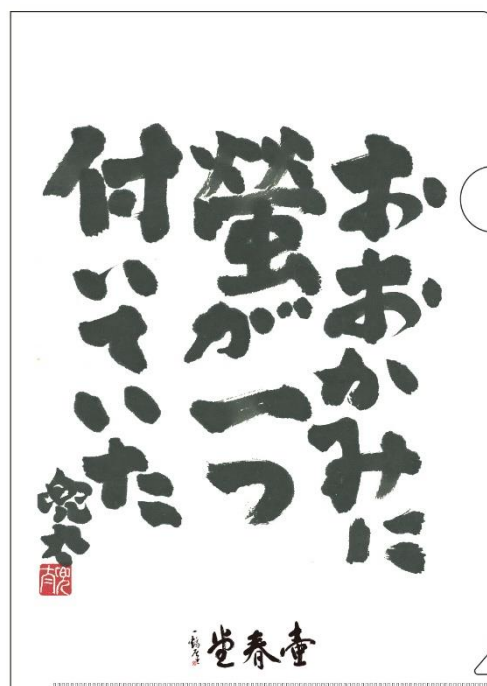 おおかみに
螢が一つ
付いていた
兜太
壺春堂